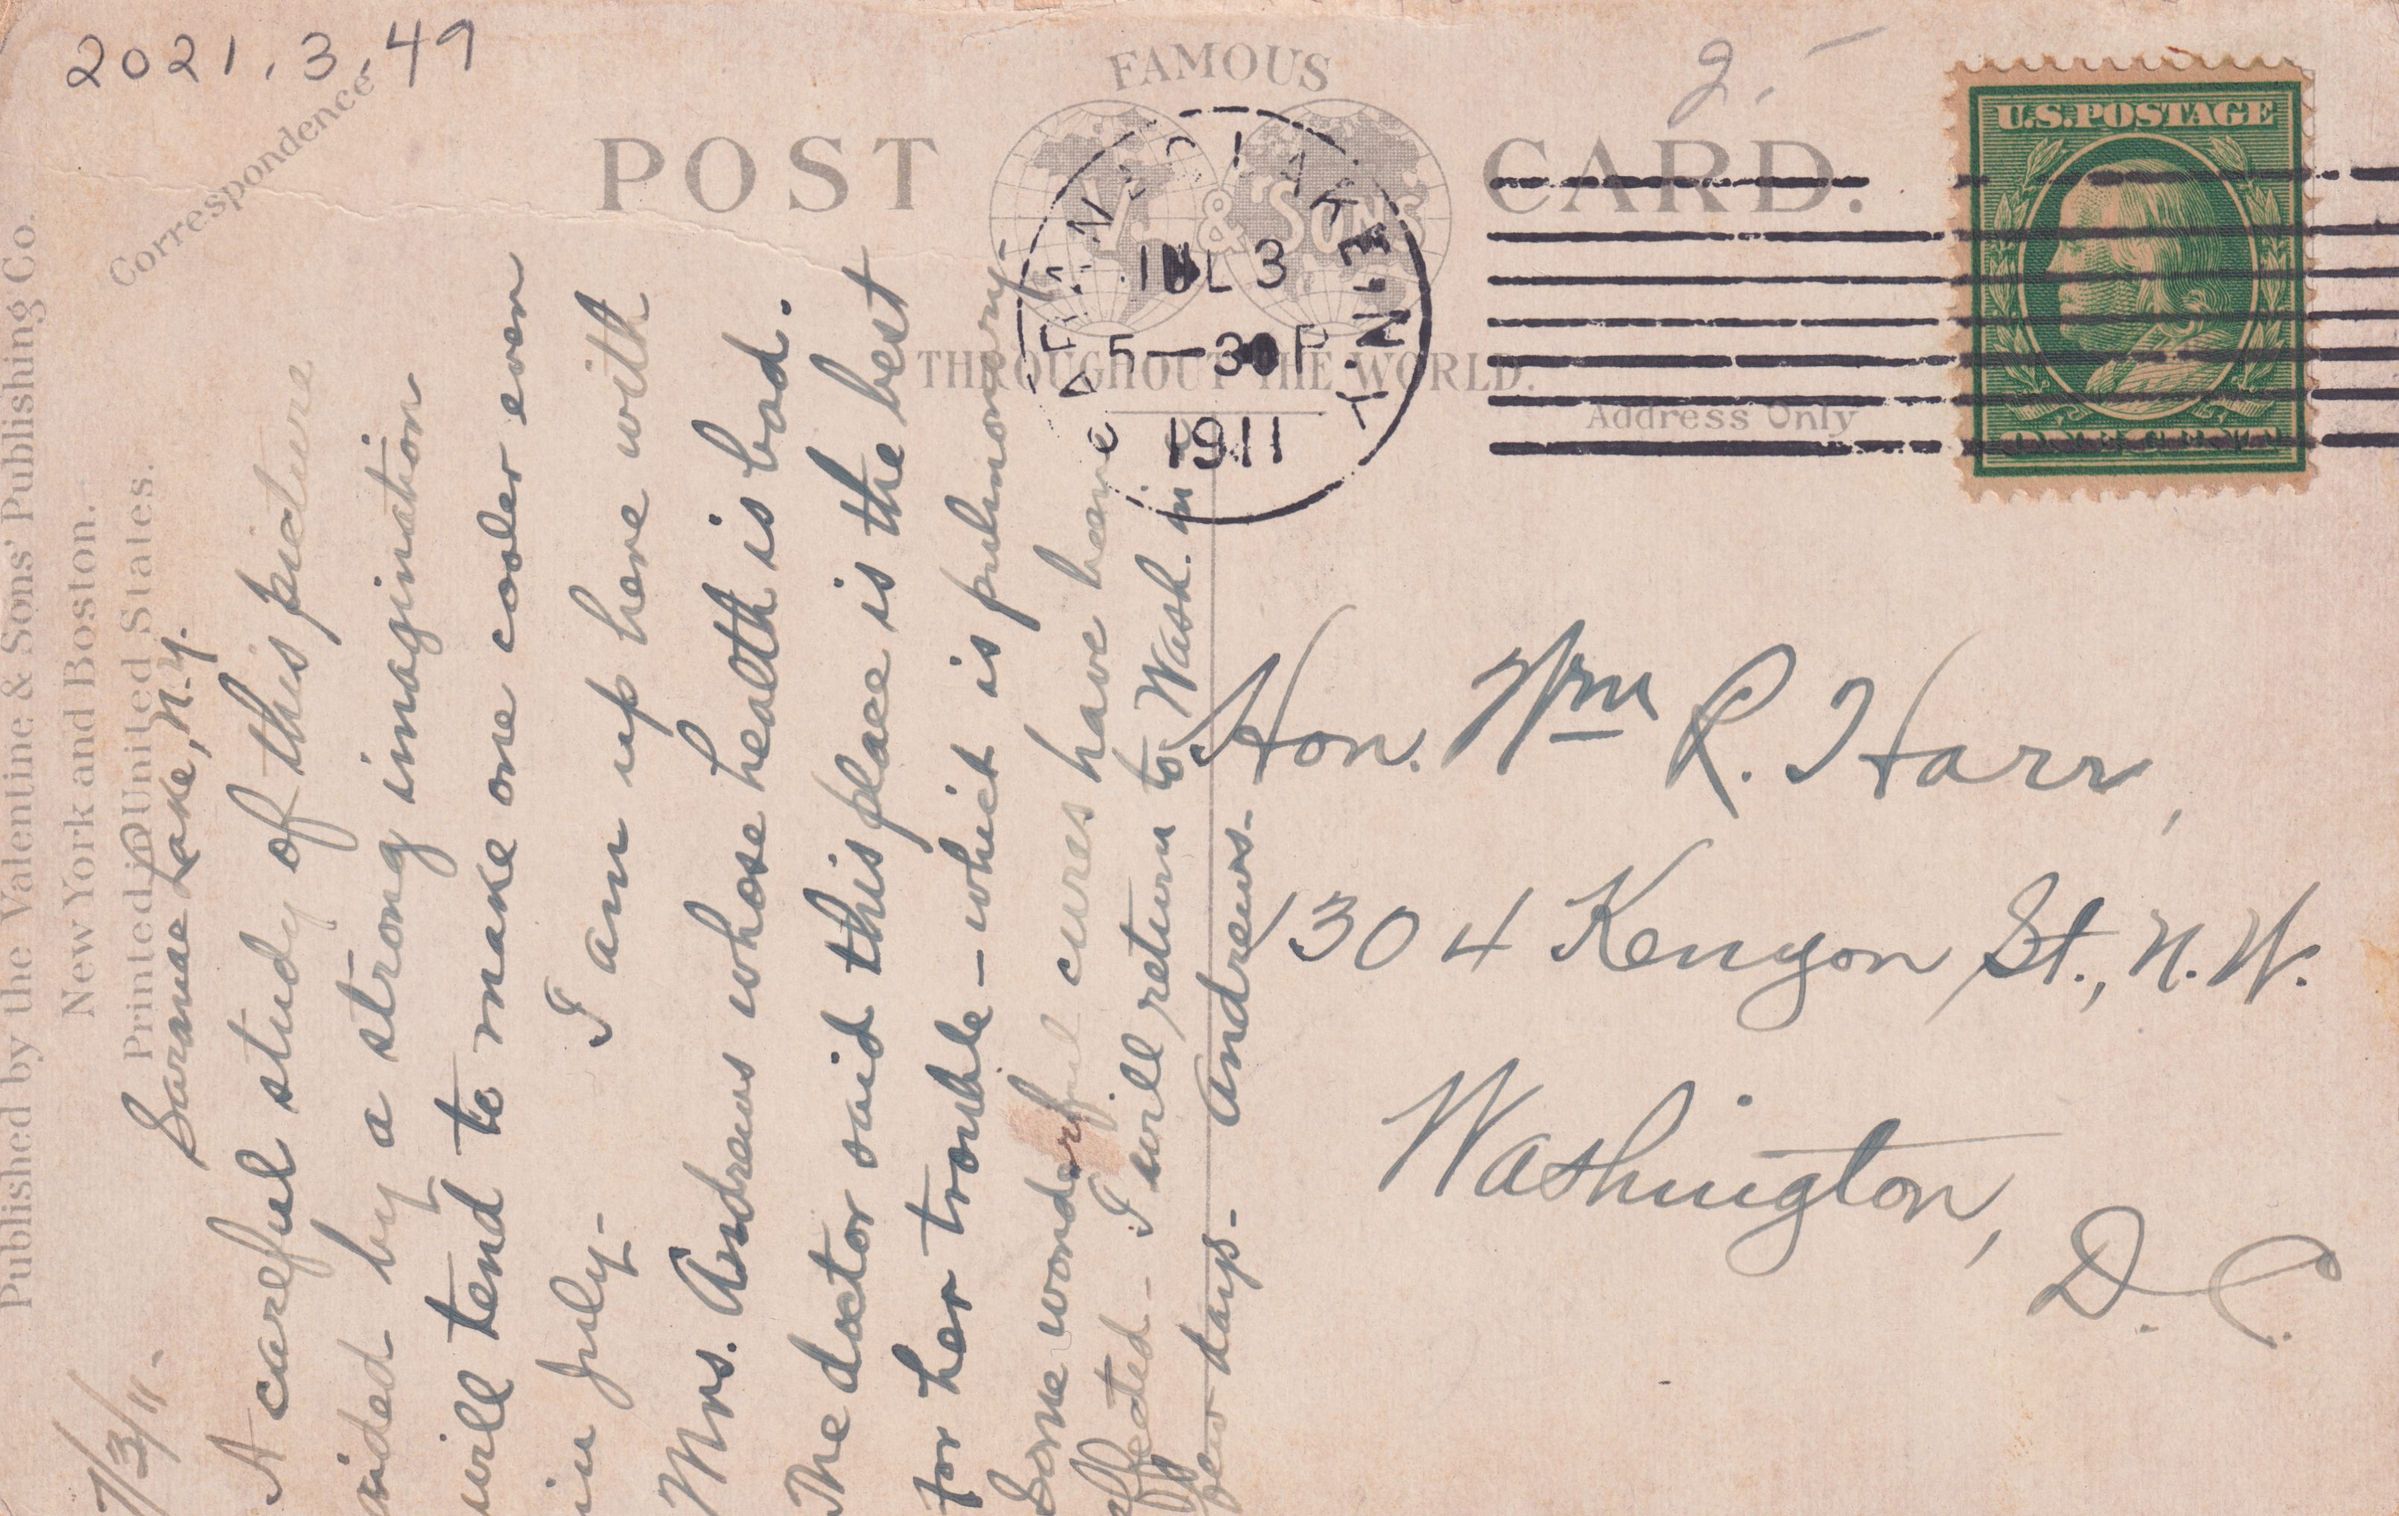 2021.3.49
Correspondence
FAMOUS
POST CARD.
& SONS
THROUGHOUT THE WORLD.
Address Only
Published by the Valentine & Sons' Publishing Co.
New York and Boston.
Printed in United States.
SARANAC LAKE, N.Y.
JUL 3
5-30 P
1911
U.S. POSTAGE
7/3/11.
Saranac Lake, N.Y.
A careful study of this picture
aided by a strong imagination
will tend to make one cooler even
in July-
I am up here with
Mrs. Andrews whose health is bad.
The doctor said this place is the best
for her trouble - which is pulmonary-
Some wonderful cures have been
effected - I will return to Wash. in a
few days- Andrews-
Hon. Wm R. Harr,
1304 Kenyon St., N.W.
Washington,
D.C.